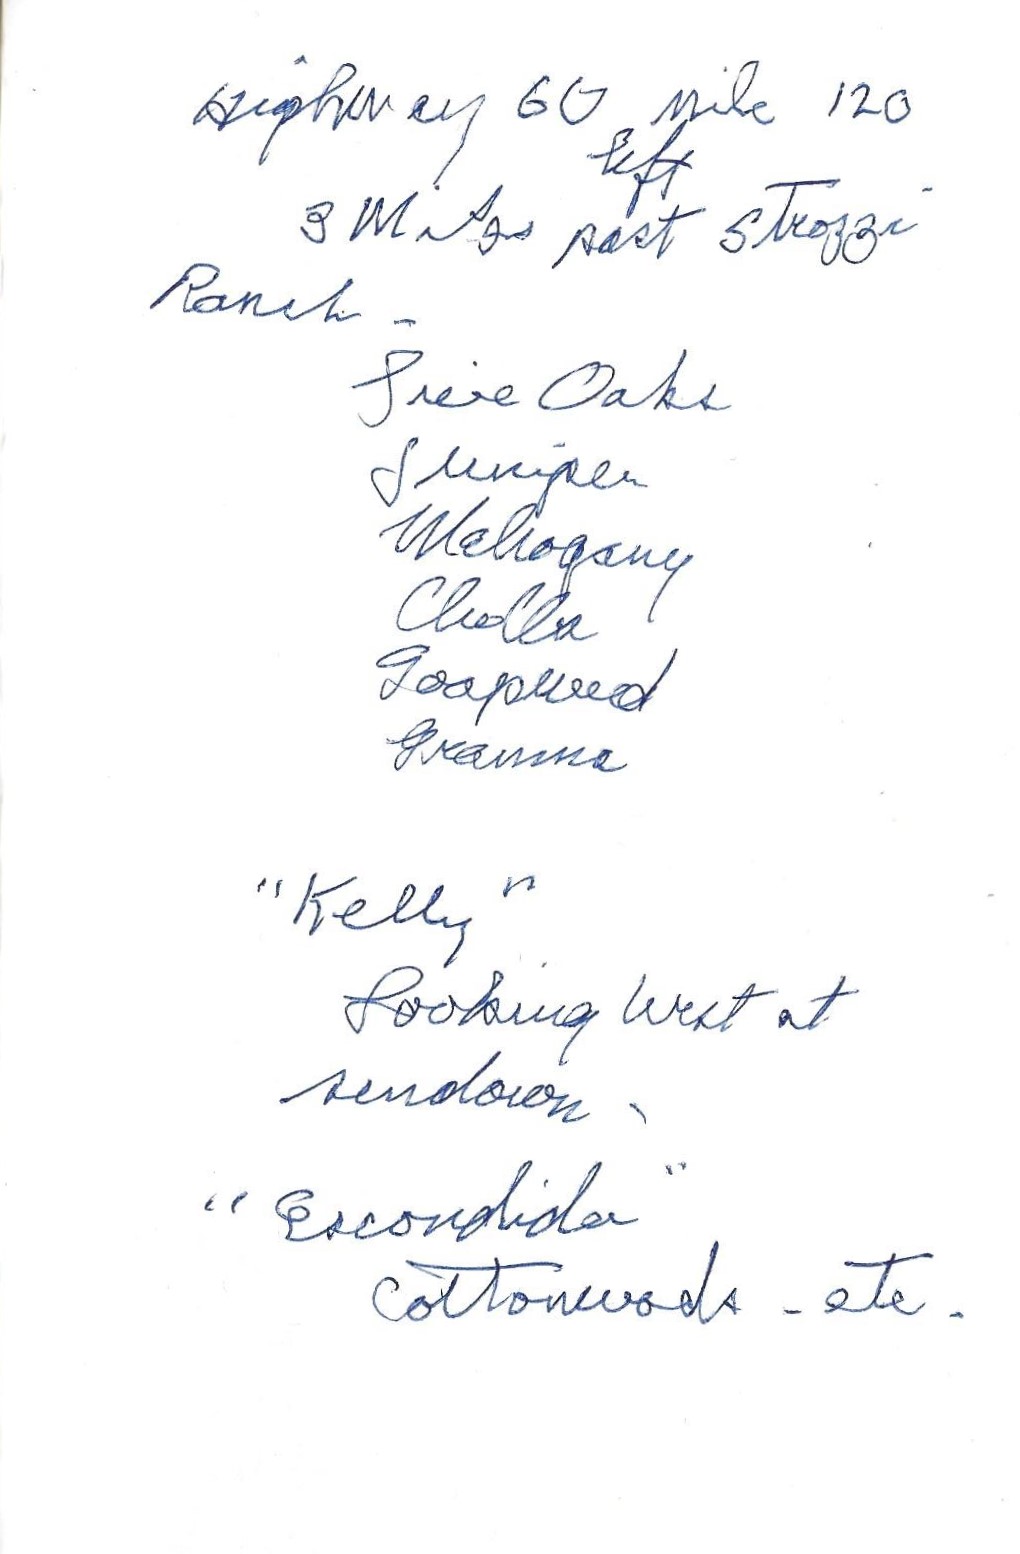 Highway 60 mile 120
left
3 Miles past Strozzi
Ranch -
Live Oaks
Juniper
Mahogany
Cholla
Soapweed
Gramma
"Kelly"
Looking West at
sundown.
"Escondida"
cottonwoods - etc -